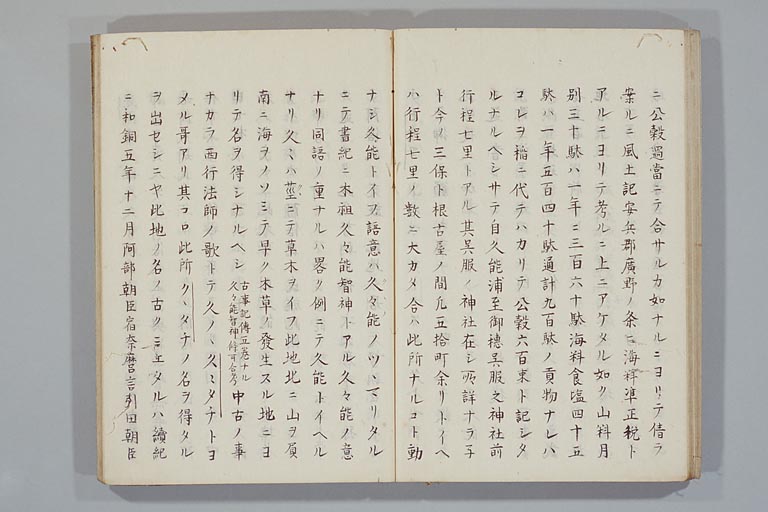 ニ公穀過當ニテ合サルカ如ナルニヨリテ借ラ
案ルニ風土記安兵郡廣野ノ条ニ海釋凖正税ト
アルニヨリテ考ルニ上ニアケタル如ク山料月
別三十駄ハ一年ニ三百六十駄海料食塩四十五
駄ハ一年五百四十駄通計九百駄ノ貢物ナレハ
コレヲ稲ニ代テハカリテ公穀六百束ト記シタ
ルナルヘシサテ自久能浦至御穂呉服之神社前
行程七里トアル其呉服ノ神社在シ所詳ナラ子
ト今ノ三保ト根古屋ノ間凡五拾町余リトイヘ
ハ行程七里ノ数ニ大カメ合ハ此所ナルコト動
ナシ久能トイフ語意ハ久々能ノツヽマリタル
ニテ書紀ニ木祖久々能智神トアル久々能ノ意
ナリ同語ノ重ナルハ畧ク例ニテ久能トイヘル
ナリ久々ハ莖ニテ草木ヲイフ此地北ニ山ヲ負
南ニ海ヲノソミテ早ク木草ノ發生スル地ニヨ
リテ名ヲ得シナルヘシ 古事記傳五巻ナル久々能智神ノ條可合考 中古ノ事
ナカラ西行法師ノ歌トテ久ノヽ久ミタチトヨ
メル哥アリ其コロ此所クヽタチノ名ヲ得タル
ヲ出セシニヤ此地ノ名ノ古クミエタルハ續紀
ニ和銅五年十二月阿部朝臣宿奈麿言引田朝臣